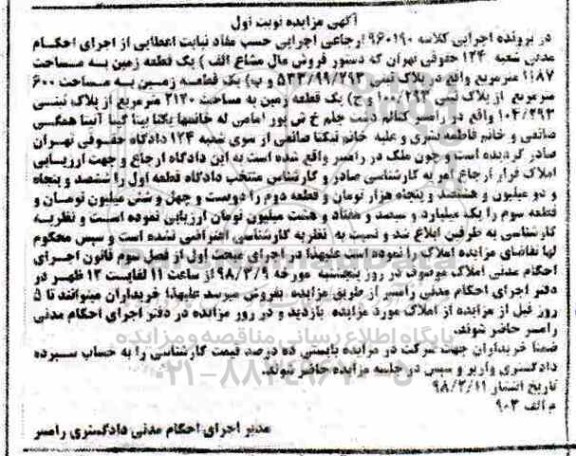 آگهی مزایده نوبت اول
در پرونده اجرایی کلاسه ۹۶۰۱۹۰ ارجاعی اجرایی حسب مفاد نیابت اعطایی از اجرای احکام
مدنی شعبه ۱۲۴ حقوقی تهران که دستور فروش مال مشاع الف ) یک قطعه زمین به مساحت
۱۱۸۷ مترمربع واقع در پلاک ثبتی ۵۳۳/۹۹/۲۹۳ و ب) یک قطعه زمین به مساحت ۶۰۰
مترمربع از پلاک ثبتی ۱۰۰/۲۹۳ و ج) یک قطعه زمین به مساحت ۲۱۲۰ مترمربع از پلاک ثبتی
۱۰۴/۲۹۳ واقع در رامسر کتالم دشت چلم خ ش پور امامی له خانمها یکتا بیتا گیتا آنیتا همگی
صانعی و خانم فاطمه تبری و علیه خانم نیکتا صانعی از سوی شعبه ۱۲۴ دادگاه حقوقی تهران
صادر گردیده است و چون ملک در رامسر واقع شده است به این دادگاه ارجاع و جهت ارزیابی
املاک قرار ارجاع امر به کارشناسی صادر و کارشناس منتخب دادگاه قطعه اول را ششصد و پنجاه
و دو میلیون و هشتصد و پنجاه هزار تومان و قطعه دوم را دویست و چهل و شش میلیون تومان و
قطعه سوم را یک میلیارد و سیصد و هفتاد و هشت میلیون تومان ارزیابی نموده است و نظریه
کارشناسی به طرفین ابلاغ شد و نسبت به نظریه کارشناسی اعتراضی نشده است و سپس محکوم
لها تقاضای مزایده املاک را نموده است علیهذا در اجرای مبحث اول از فصل سوم قانون اجرای
احکام مدنی املاک موصوف در روز پنجشنبه مورخه ۹۸/۳/۹ از ساعت ۱۱ لغایت ۱۲ ظهر در
دفتر اجرای احکام مدنی رامسر از طریق مزایده بفروش میرسد علیهذا خریداران میتوانند تا ۵
روز قبل از مزایده از املاک مورد مزایده بازدید و در روز مزایده در دفتر اجرای احکام مدنی
رامسر حاضر شوند.
ضمنا خریداران جهت شرکت در مزایده بایستی ده درصد قیمت کارشناسی را به حساب سپرده
دادگستری واریز و سپس در جلسه مزایده حاضر شوند.
تاریخ انتشار ۹۸/۲/۱۱
م الف ۹۰۳
مدیر اجرای احکام مدنی دادگستری رامسر
پایگاه اطلاع رسانی مناقصه و مزایده